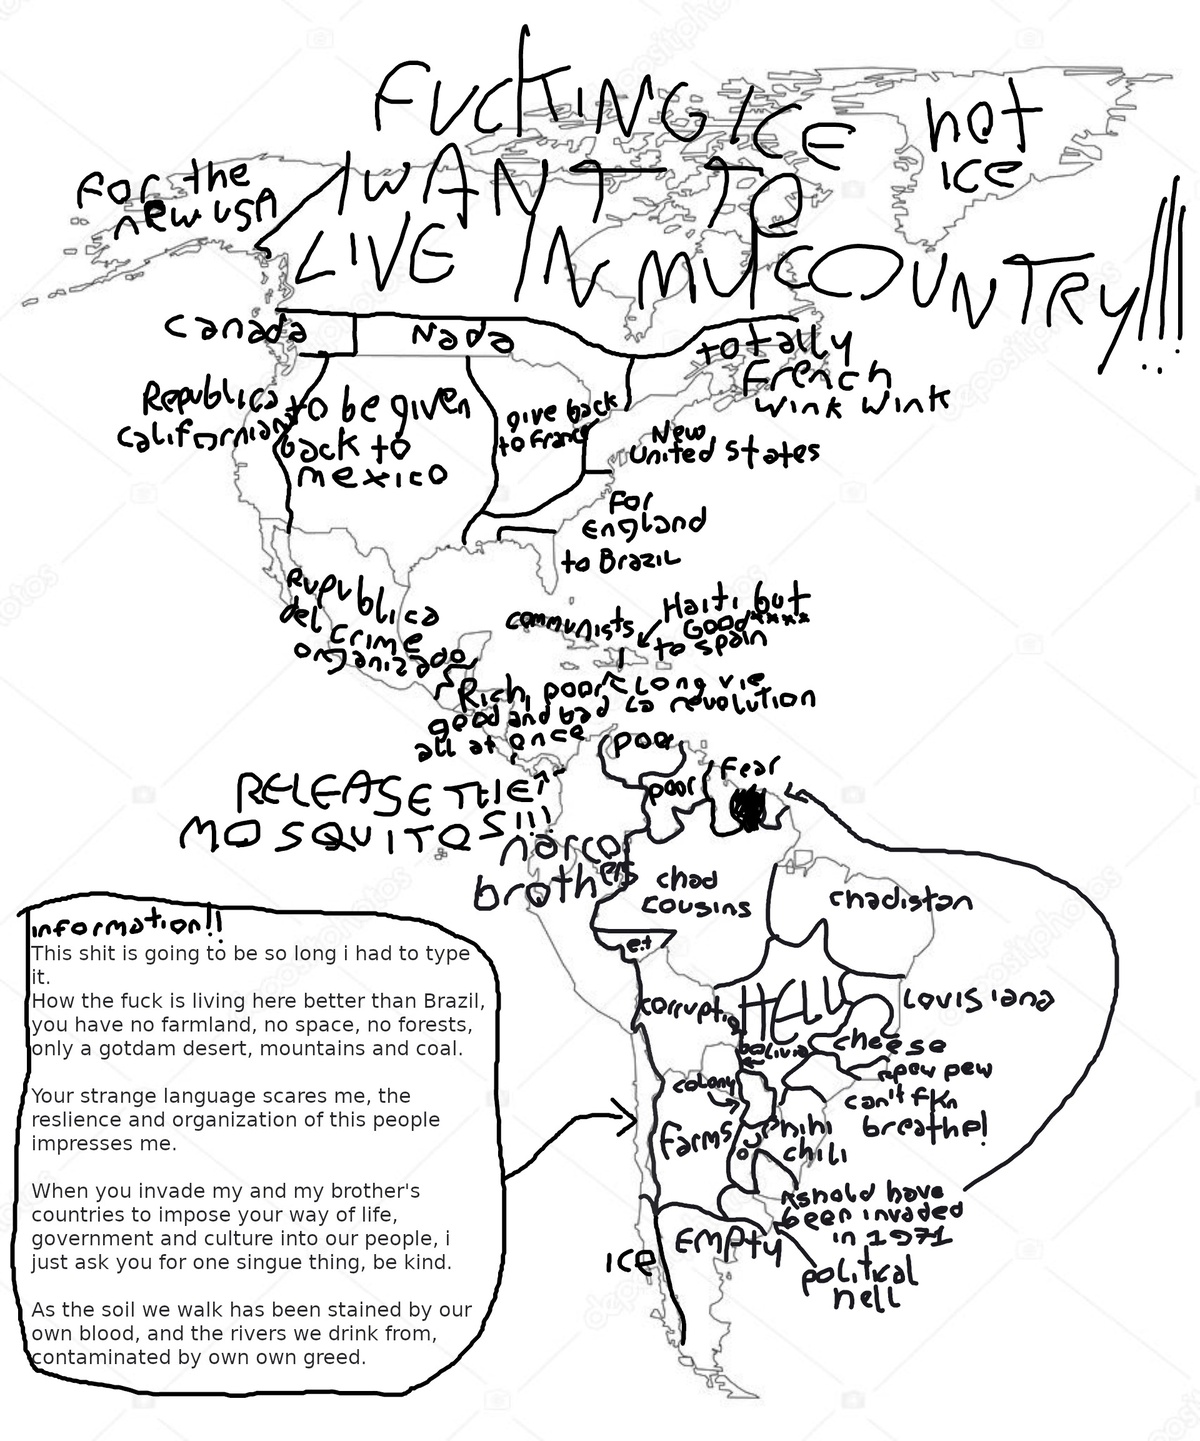 FUCKING ICE
I WANT TO
LIVE IN MY COUNTRY!!!!
not
ICE
For the
new USA
Canada
Nada
totally
French
wink wink
Republica
californiana
to be given
back to
mexico
give back
to France
New
United States
For
England
to Brazil
Republica
del crime
organizado
communists
Haiti but
Good****
to spain
Rich, poor
good and bad
all at once
Long vie
la revolution
RELEASE THE
MOSQUITOS!!!
poor
poor
Fear
narco
brothers
chad
cousins
chadistan
e.t
corruptio
HELL
Louisiana
bolivia
cheese
pew pew
can't fkn
breathe!
colony
Farms
hihi
chili
shold have
been invaded
in 1971
political
hell
EMPty
ICE
information!!
This shit is going to be so long i had to type
it.
How the fuck is living here better than Brazil,
you have no farmland, no space, no forests,
only a gotdam desert, mountains and coal.
Your strange language scares me, the
reslience and organization of this people
impresses me.
When you invade my and my brother's
countries to impose your way of life,
government and culture into our people, i
just ask you for one singue thing, be kind.
As the soil we walk has been stained by our
own blood, and the rivers we drink from,
contaminated by own own greed.
depositphotos